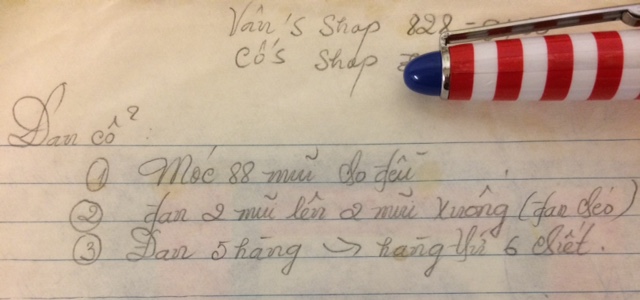 Vân's Shop 828-
Cô's Shop
Đan cổ:
① Móc 88 mũi cho đều
② đan 2 mũi lên 2 mũi xuống (đan chéo)
③ Đan 5 hàng → hàng thứ 6 chiết.